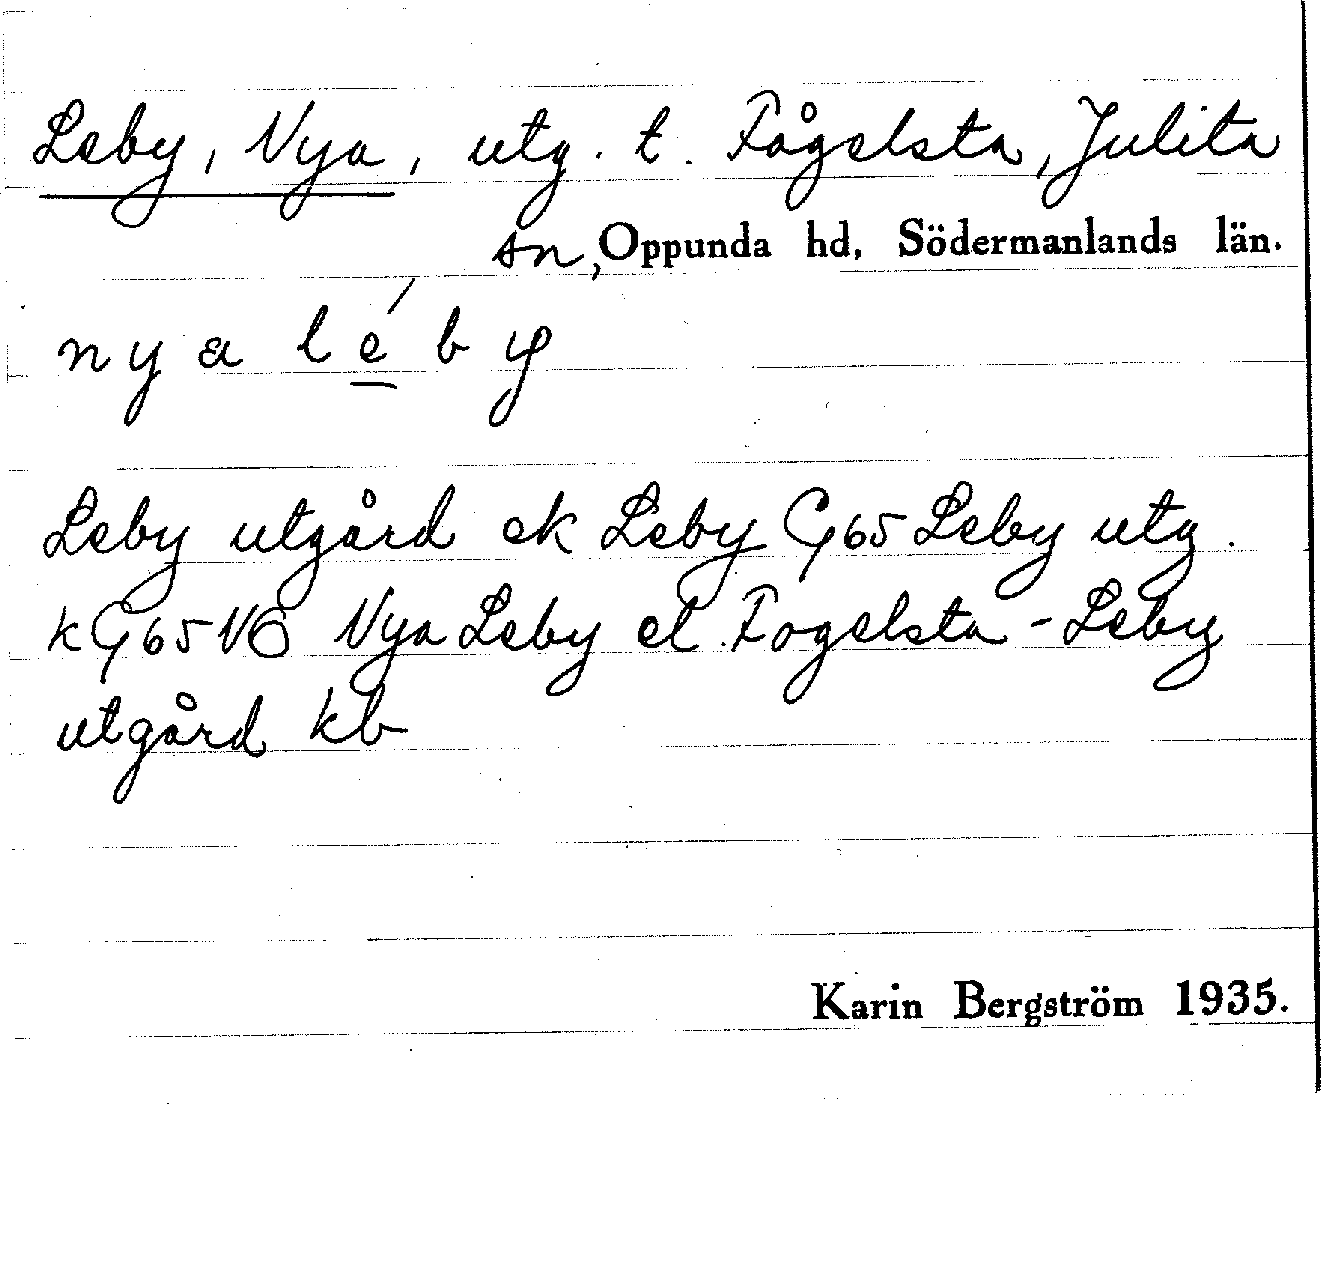 Leby, Nya, utg. t. Fågelsta, Julita
sn, Oppunda hd, Södermanlands län.
nya léby
Leby utgård ek Leby G65 Leby utg.
k G65 NÖ Nya Leby el. Fogelsta-Leby
utgård kb
Karin Bergström 1935.